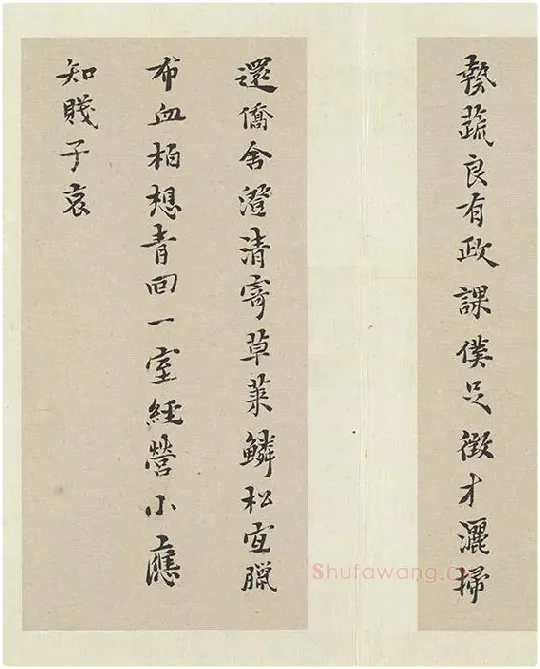 蓺蔬良有政課僕足徵才灑掃
還僑舍澄清寄草萊鱗松宜臘
布血柏想青回一室經營小應
知賤子哀
Shufawang.cn